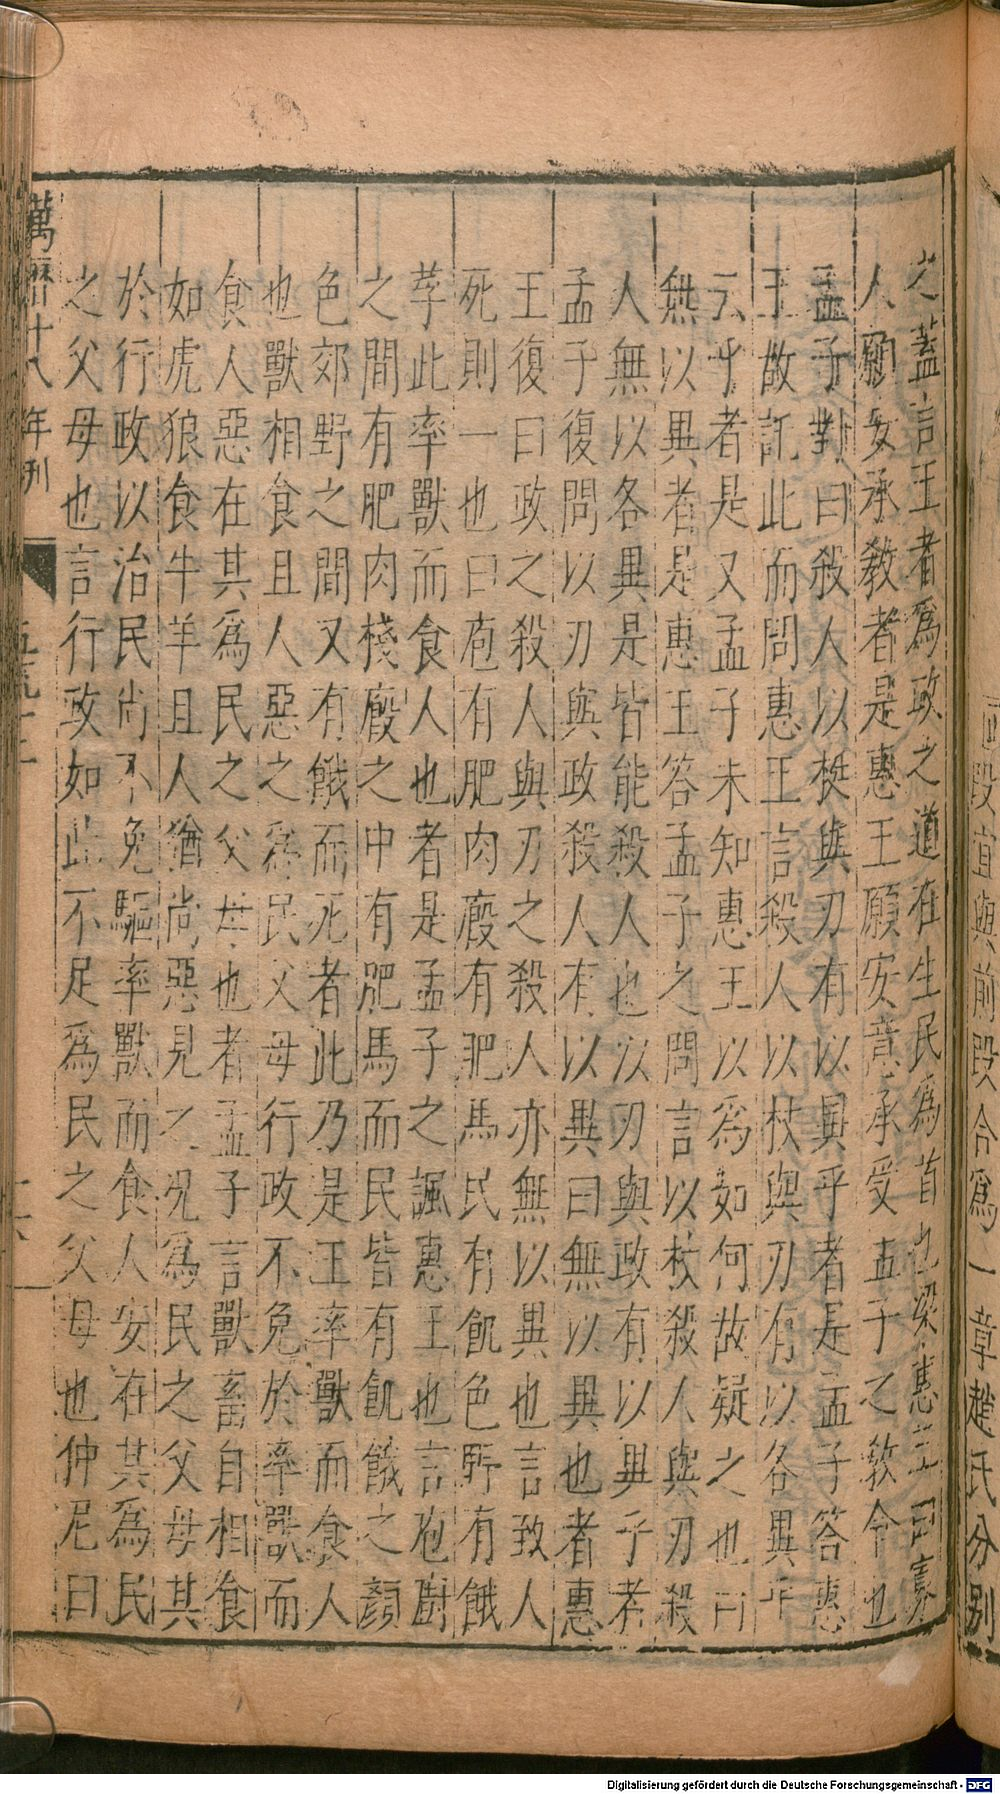 此段宜與前段合爲一章趙氏分別
之蓋言王者爲政之道在生民爲首也梁惠王曰寡
人願安承教者是惠王願安意承受孟子之教令也
孟子對曰殺人以梃與刃有以異乎者是孟子荅惠
王故託此而問惠王言殺人以杖與刃有以各異乎
云乎者是又孟子未知惠王以爲如何故疑之也曰
無以異者是惠王答孟子之問言以杖殺人與刃殺
人無以各異是皆能殺人也以刃與政有以異乎者
孟子復問以刃與政殺人有以異曰無以異也者惠
王復曰政之殺人與刃之殺人亦無以異也言致人
死則一也曰庖有肥肉廄有肥馬民有飢色野有餓
莩此率獸而食人也者是孟子之諷惠王也言庖廚
之間有肥肉棧廄之中有肥馬而民皆有飢餓之顏
色郊野之間又有餓而死者此乃是王率獸而食人
也獸相食且人惡之爲民父母行政不免於率獸而
食人惡在其爲民之父母也者孟子言獸畜自相食
如虎狼食牛羊且人猶尚惡見之況爲民之父母其
於行政以治民尚不免驅率獸而食人安在其爲民
之父母也言行政如此不足爲民之父母也仲尼曰
萬曆十八年刊
Digitalisierung gefördert durch die Deutsche Forschungsgemeinschaft - DFG